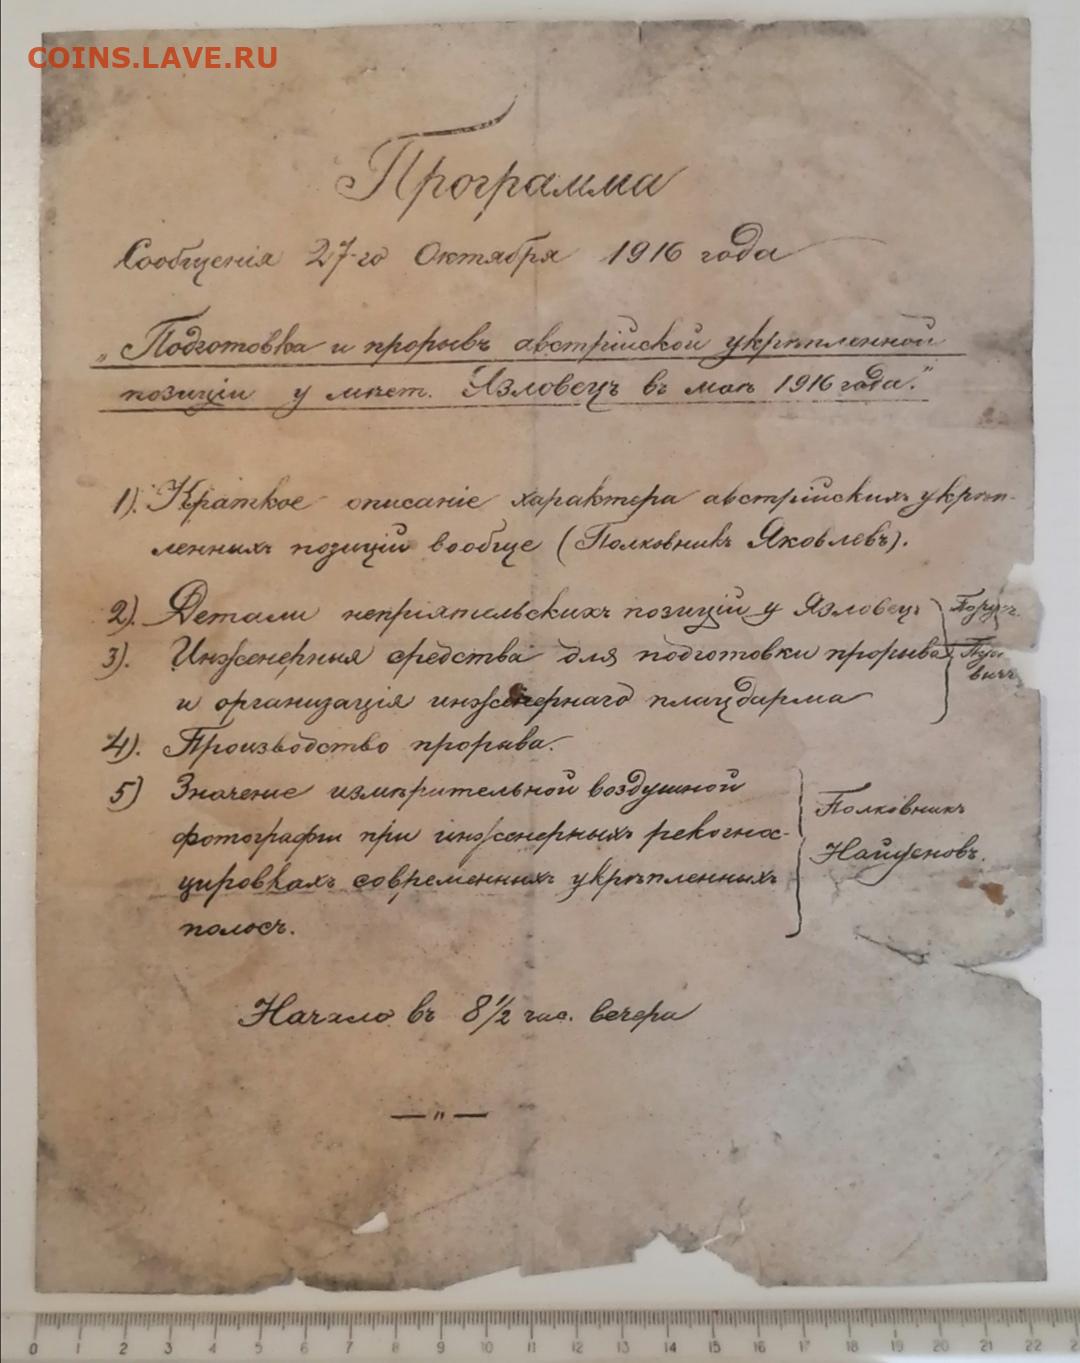 COINS.LAVE.RU
Программа
Сообщенія 27-го Октября 1916 года
„Подготовка и прорывъ австрійской укрѣпленной
позиціи у мѣст. Язловецъ въ маѣ 1916 года."
1). Краткое описаніе характера австрійскихъ укрѣп-
ленныхъ позицій вообще (Полковникъ Яковлевъ).
2). Детали непріятельскихъ позицій у Язловецъ
3). Инженерныя средства для подготовки прорыва
и организація инженернаго плацдарма
4). Производство прорыва.
5) Значеніе измѣрительной воздушной
фотографіи при инженерныхъ рекогнос-
цировкахъ современныхъ укрѣпленныхъ
полосъ.
Полковникъ
Найденовъ.
Начало въ 8 1/2 час. вечера
— " —
0 1 2 3 4 5 6 7 8 9 10 11 12 13 14 15 16 17 18 19 20 21 22